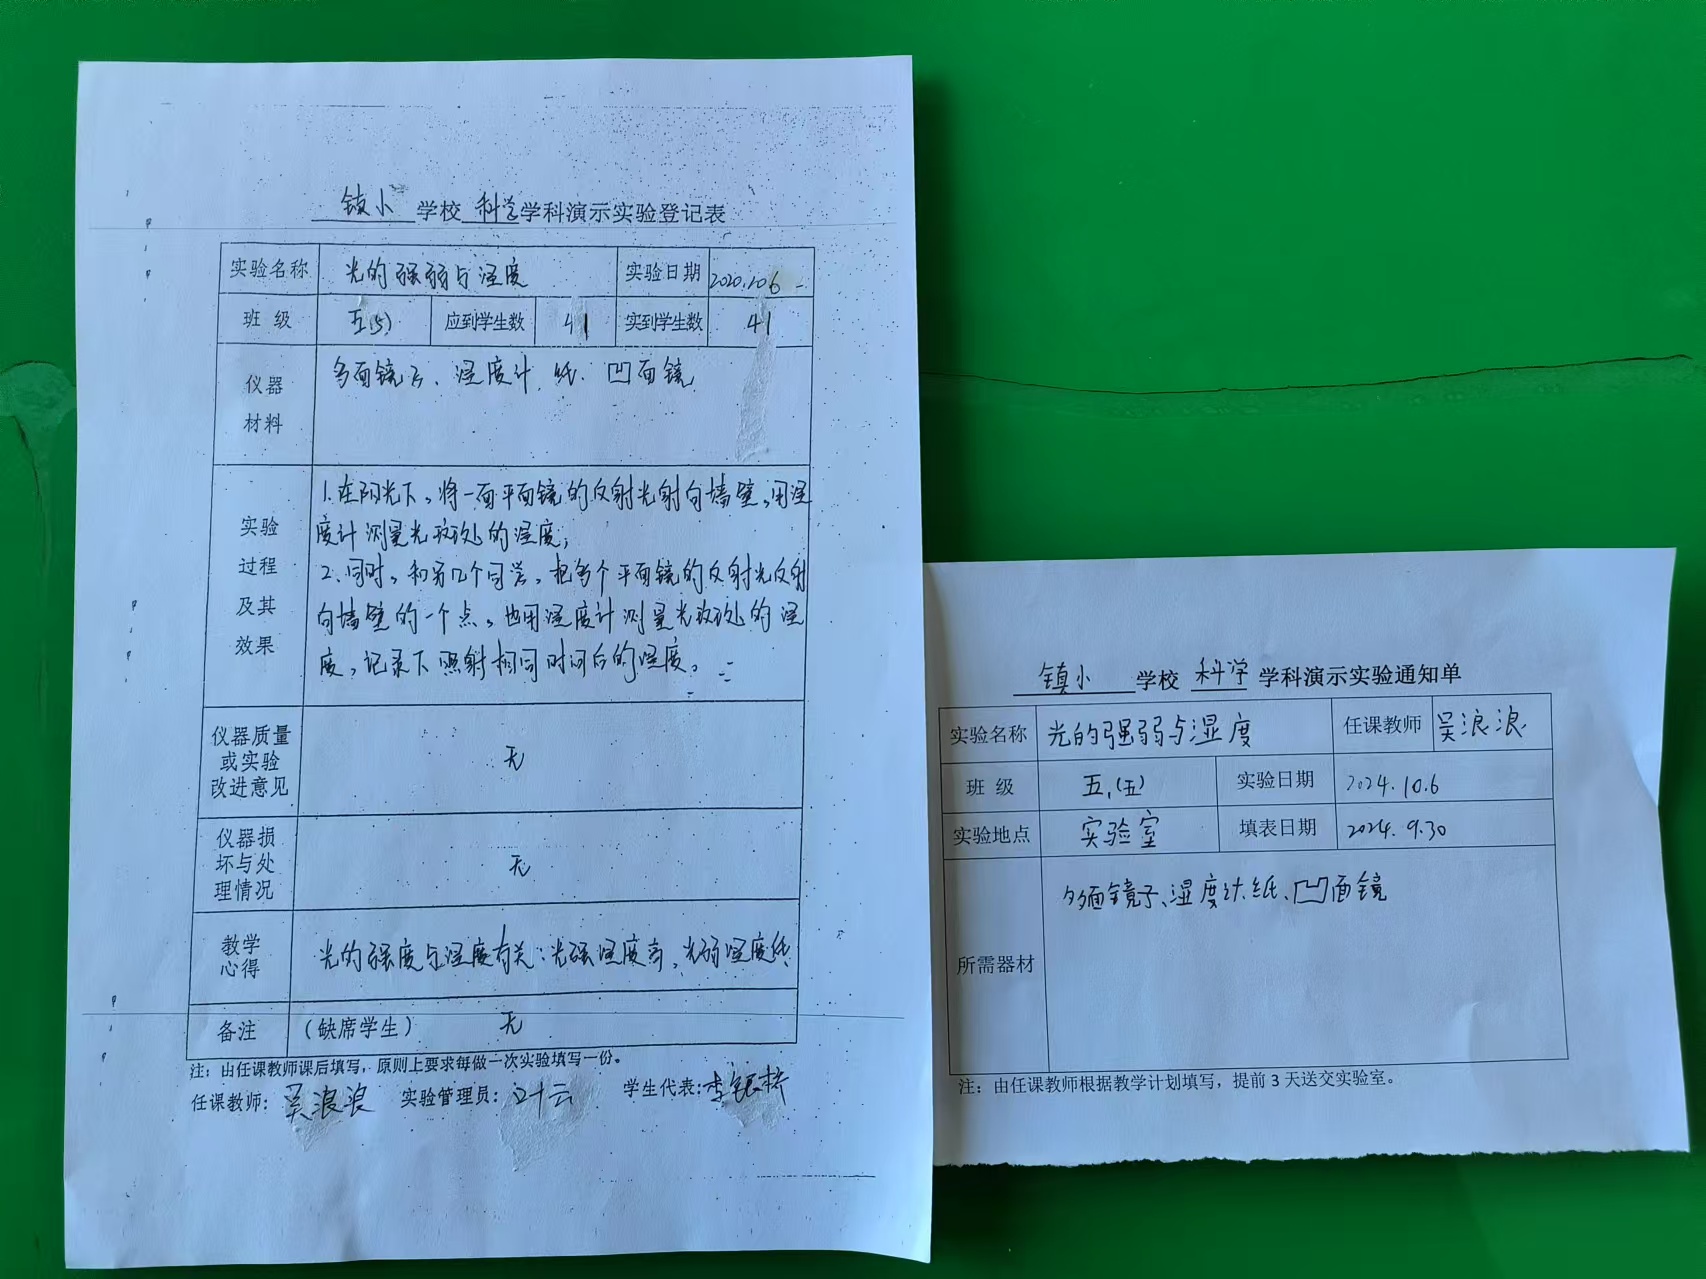 镇小 学校 科学 学科演示实验登记表
实验名称 光的强弱与湿度 实验日期 2020.10.6
班 级 五(5) 应到学生数 41 实到学生数 41
仪器
材料
多面镜子、湿度计、纸、凹面镜
实验
过程
及其
效果
1.在阳光下,将一面平面镜的反射光射向墙壁,用湿
度计测量光斑处的湿度;
2.同时,和另几个同学,把多个平面镜的反射光反射
向墙壁的一个点,也用湿度计测量光斑处的湿
度,记录下照射相同时间后的湿度。
仪器质量
或实验
改进意见
无
仪器损
坏与处
理情况
无
教学
心得
光的强度与湿度有关:光强湿度高,光弱湿度低
备注 (缺席学生) 无
注:由任课教师课后填写,原则上要求每做一次实验填写一份。
任课教师: 吴浪浪 实验管理员: 叶云 学生代表: 李
镇小 学校 科学 学科演示实验通知单
实验名称 光的强弱与湿度 任课教师 吴浪浪
班 级 五.(五) 实验日期 2024.10.6
实验地点 实验室 填表日期 2024.9.30
所需器材
多面镜子、湿度计、纸、凹面镜
注:由任课教师根据教学计划填写,提前 3 天送交实验室。